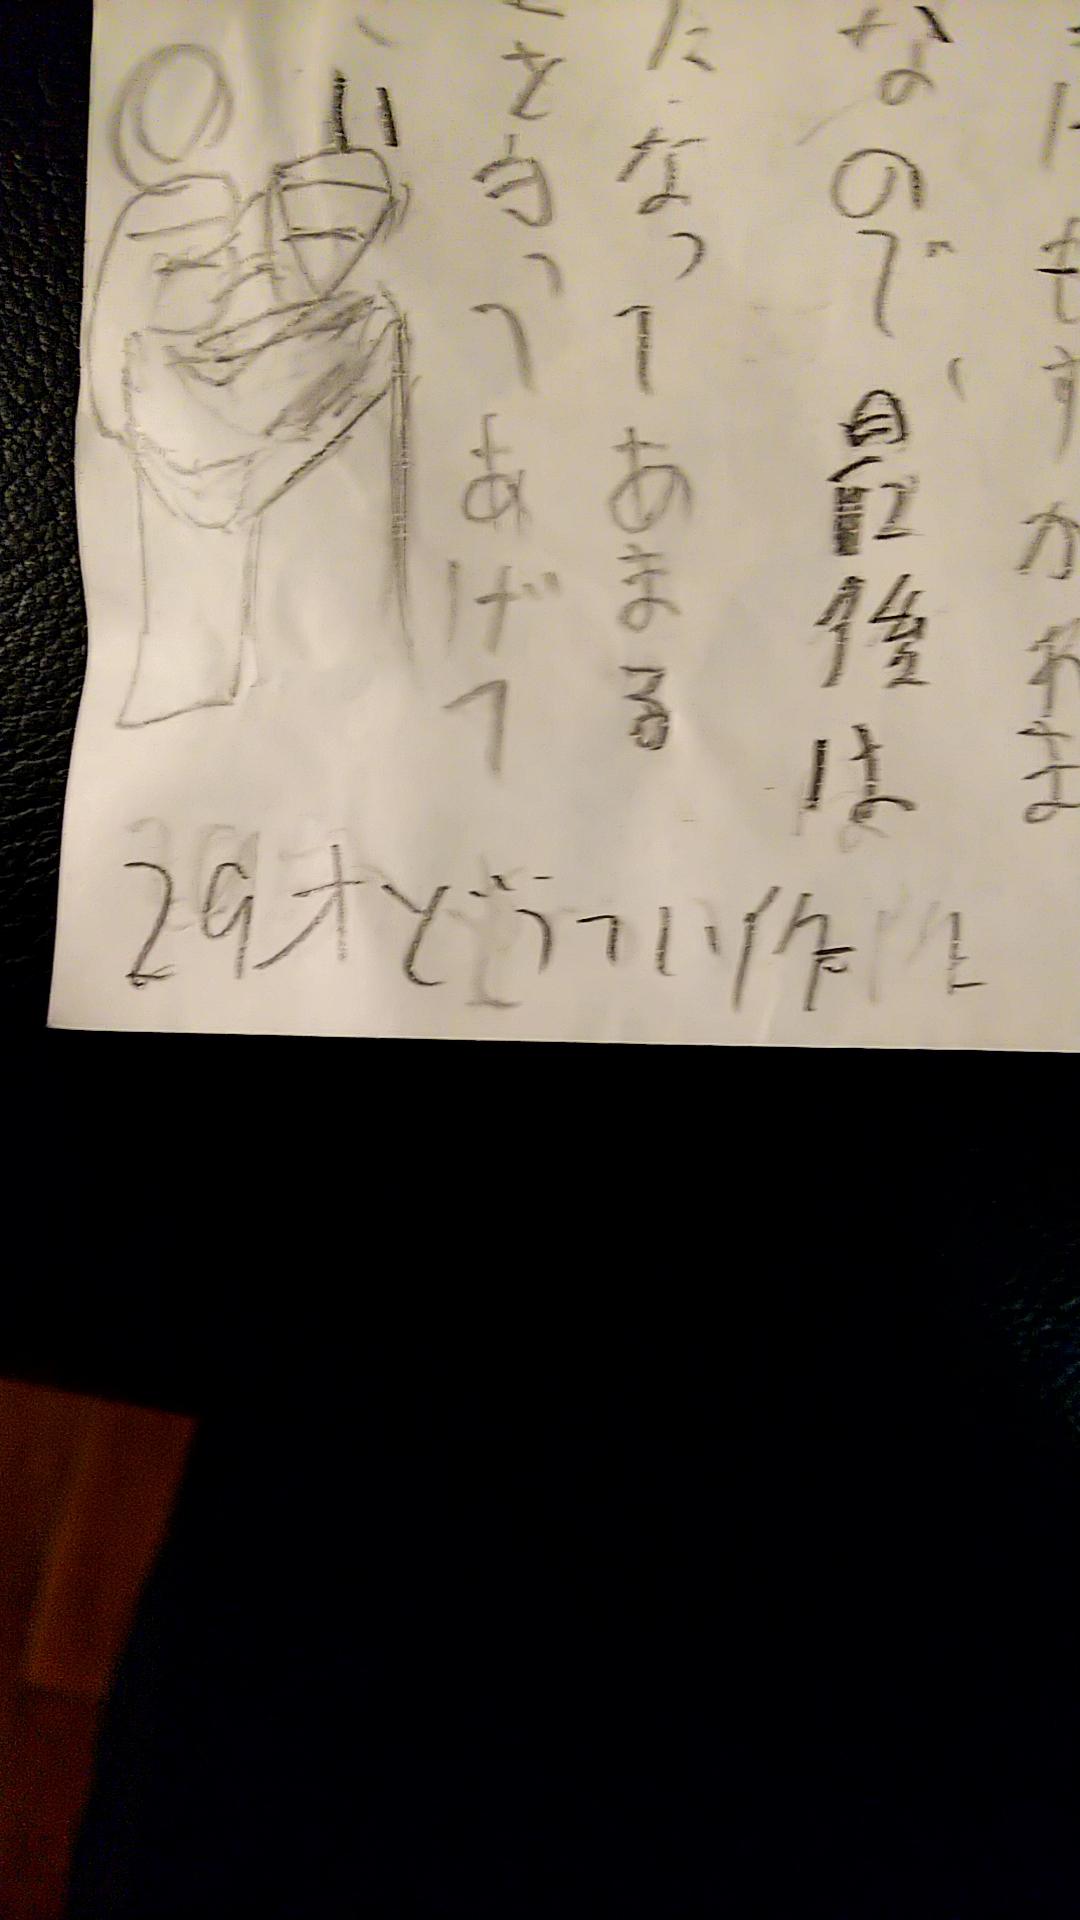 にもすかれま
なので、最後は
になってあまる
とを言ってあげて
い
29才どうてい作